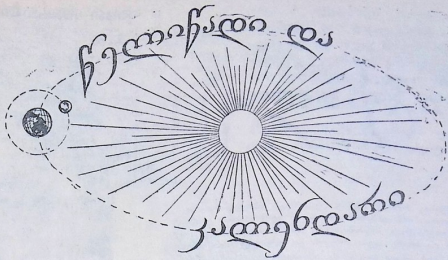 წელიწადი და
კალენდარი